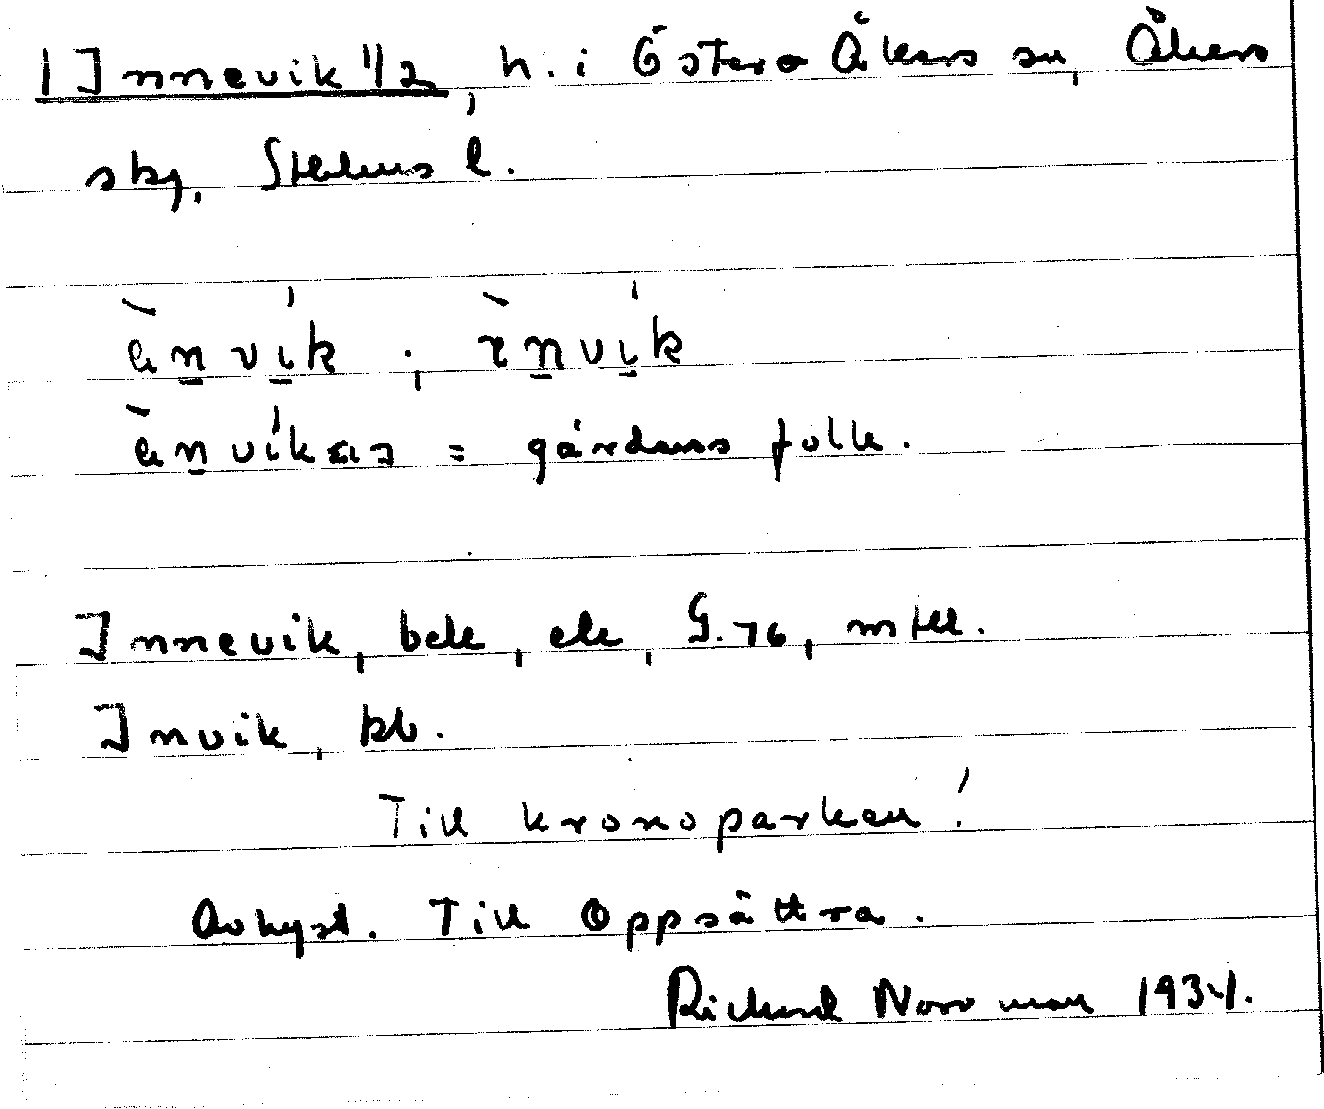 1 Innevik 1/2, h. i Östera Åkers sn, Åkers
skg, Sthlms l.
ènvik ; ìnvik
ènvikaz = gårdens folk.
Innevik, bek, ek, G. 76, mtll.
Invik, kb.
Till kronoparken!
Avhyst. Till Oppsättra.
Richard Norrman 1934.